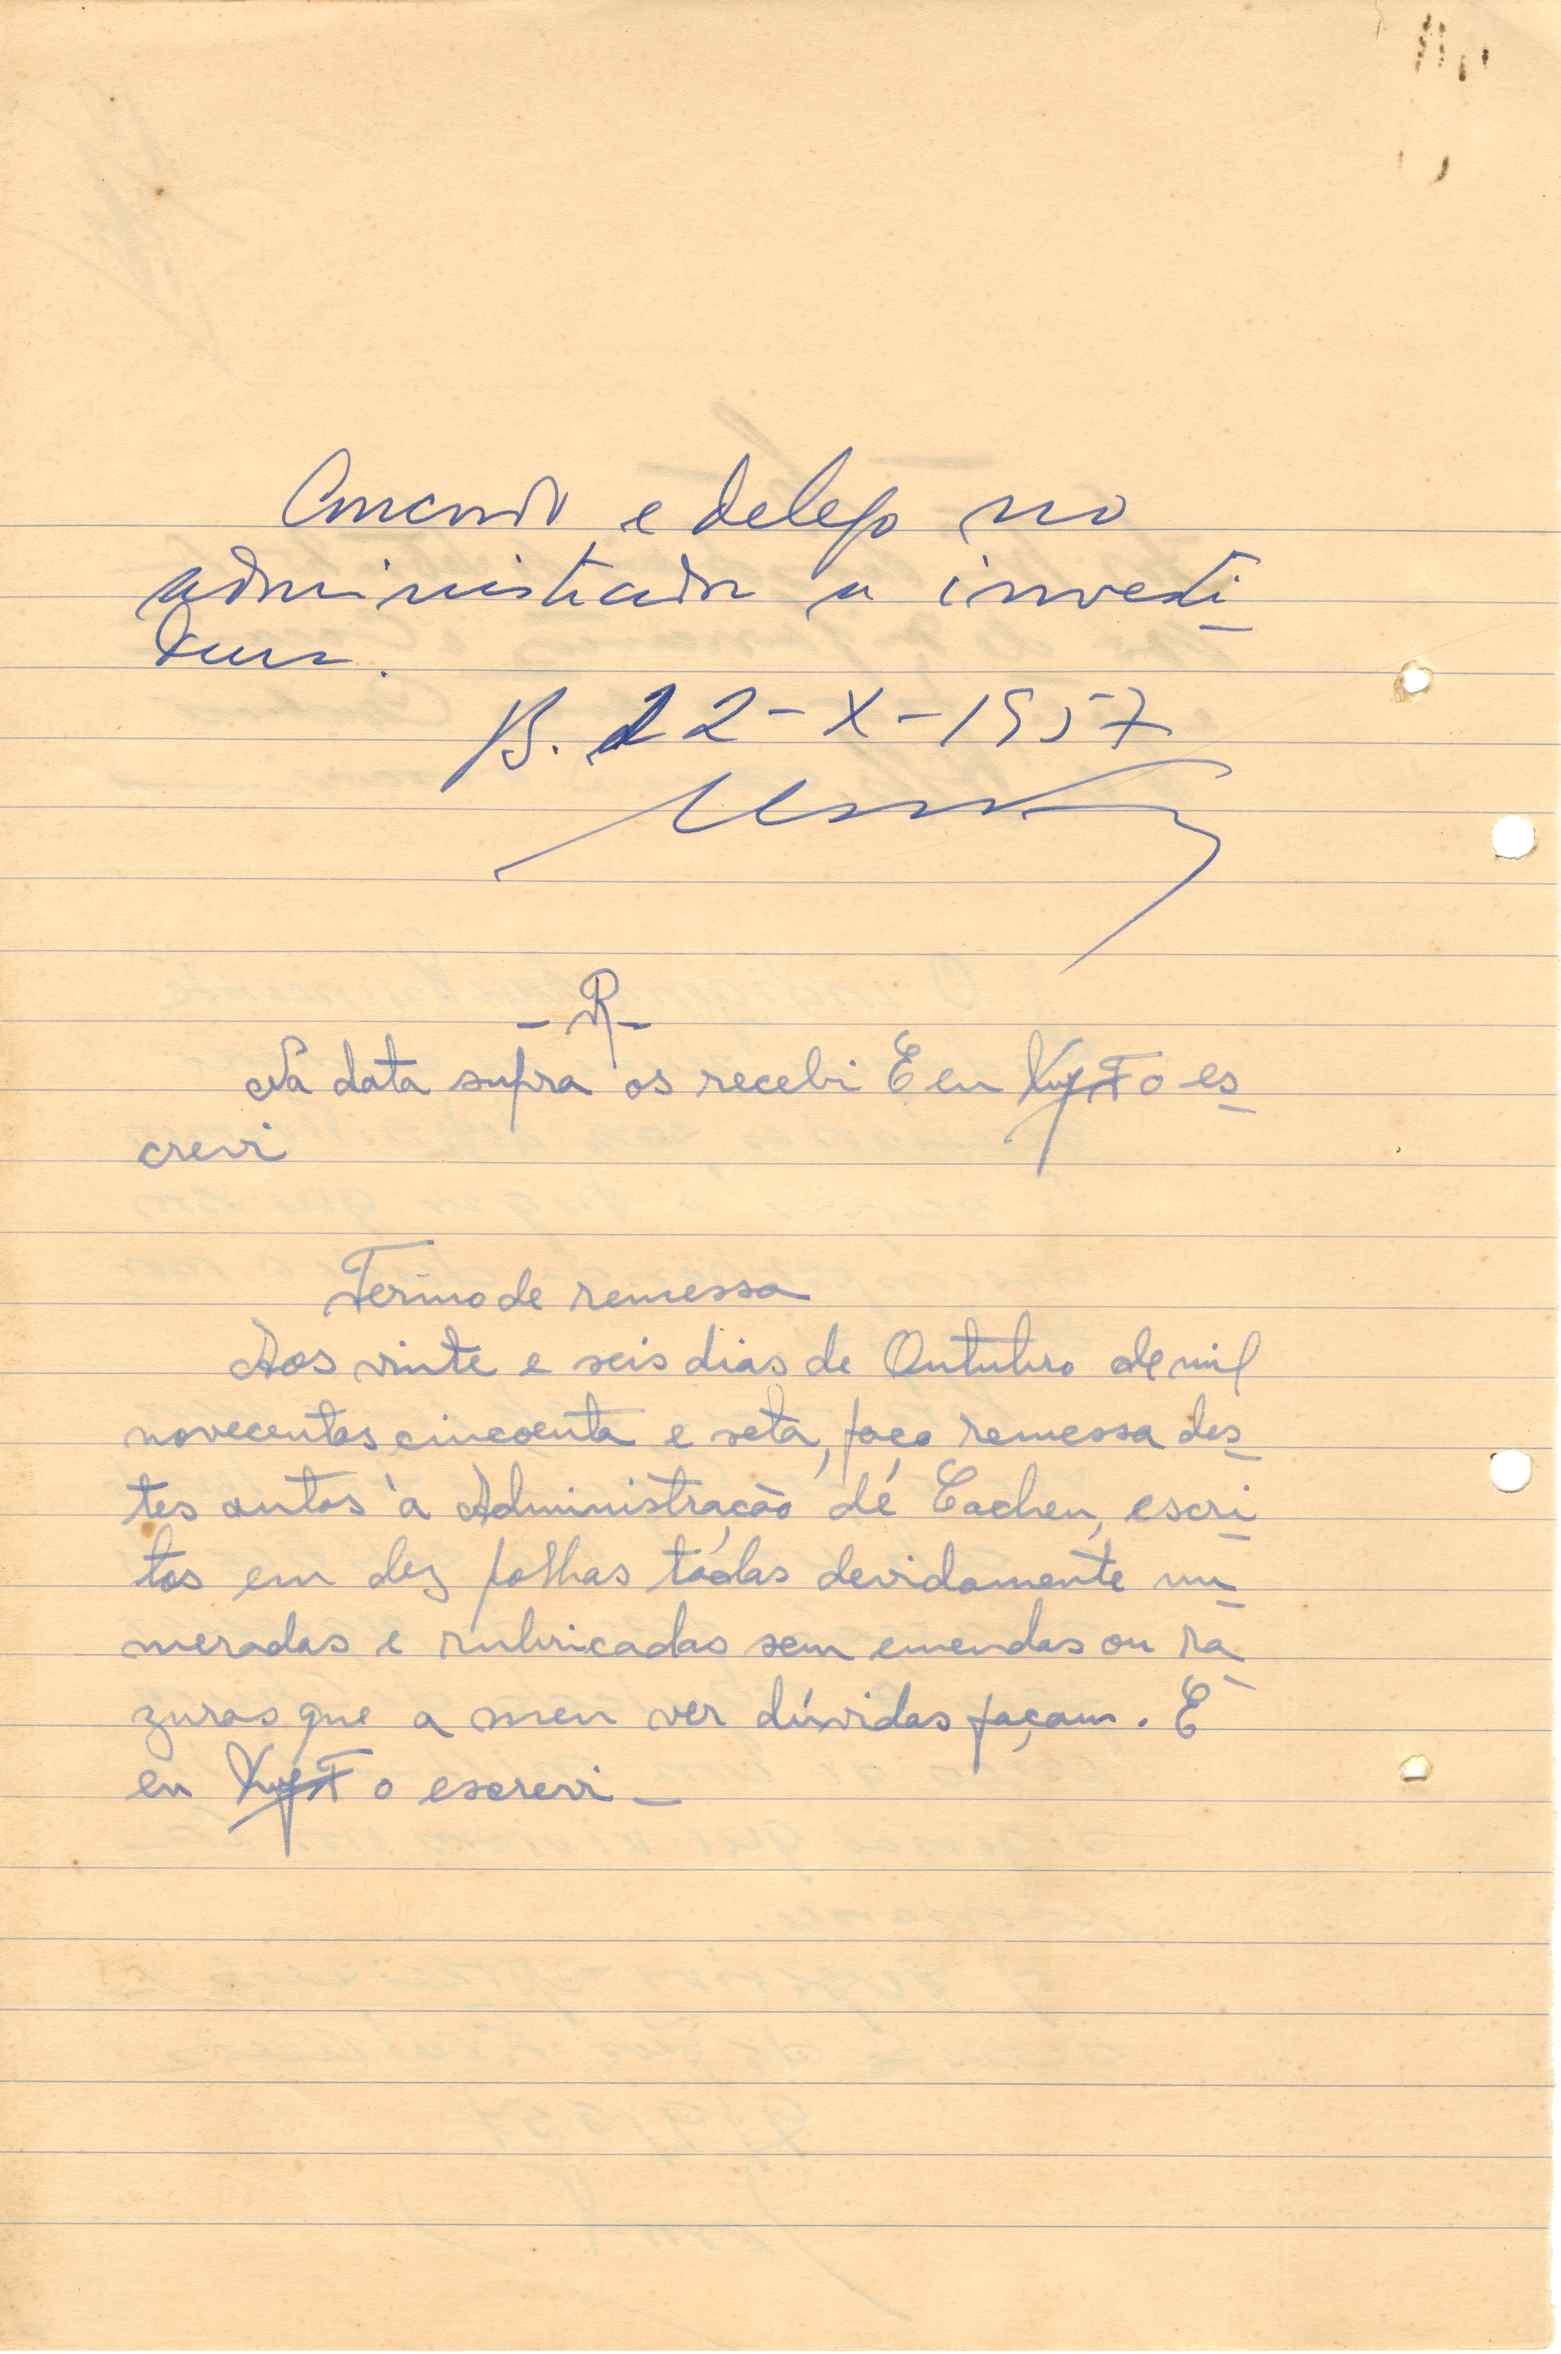 Concordo e delego no
administrador a investi
dura.
B. 22-X-1957
-R-
Na data supra os recebi E eu o es
crevi
Termo de remessa
Aos vinte e seis dias de Outubro de mil
novecentos cincoenta e sete, faço remessa des
tes autos à Administração de Cacheu, escri
tos em dez folhas tôdas devidamente nu
meradas e rubricadas sem emendas ou ra
zuras que a meu ver dúvidas façam. E
eu o escrevi -